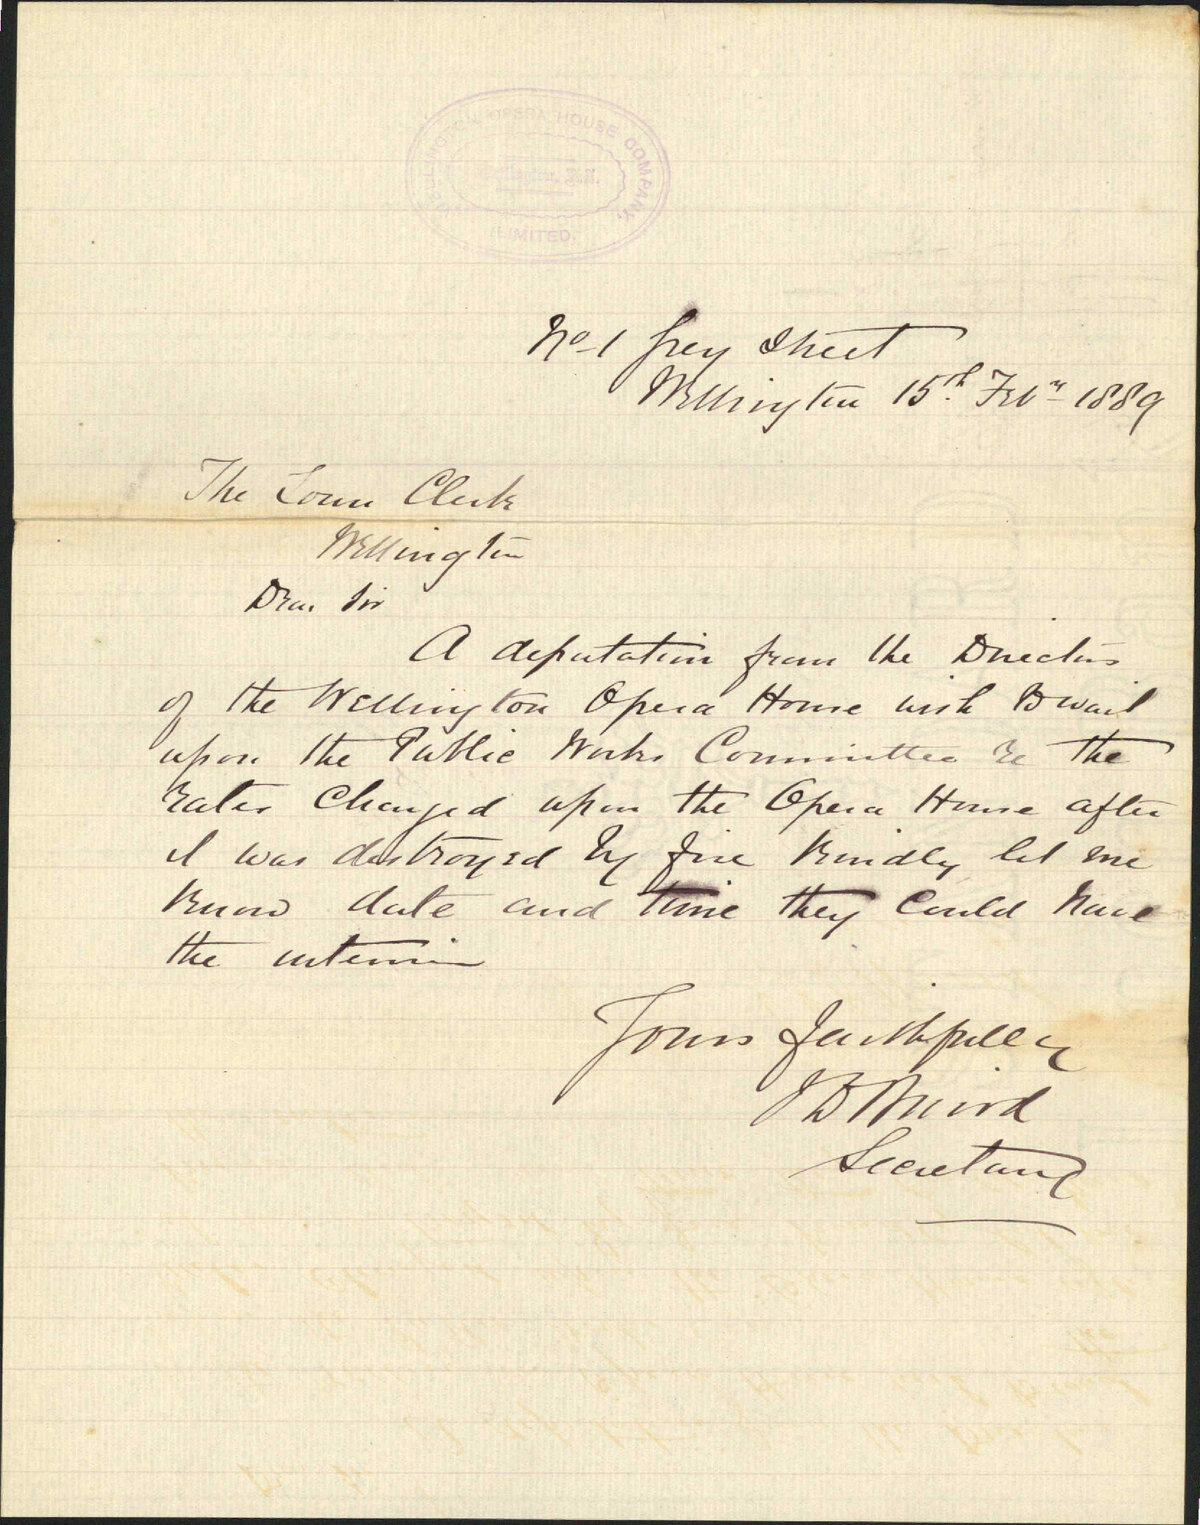 WELLINGTON OPERA HOUSE COMPANY,
Wellington, N.Z.
LIMITED.
No 1 Grey Street
Wellington 15th Feby 1889
The Town Clerk
Wellington
Dear Sir
A deputation from the Directors
of the Wellington Opera House wish to wait
upon the Public Works Committee re the
rates charged upon the Opera House after
it was destroyed by fire Kindly let me
know date and time they could have
the interview
Yours faithfully
Secretary